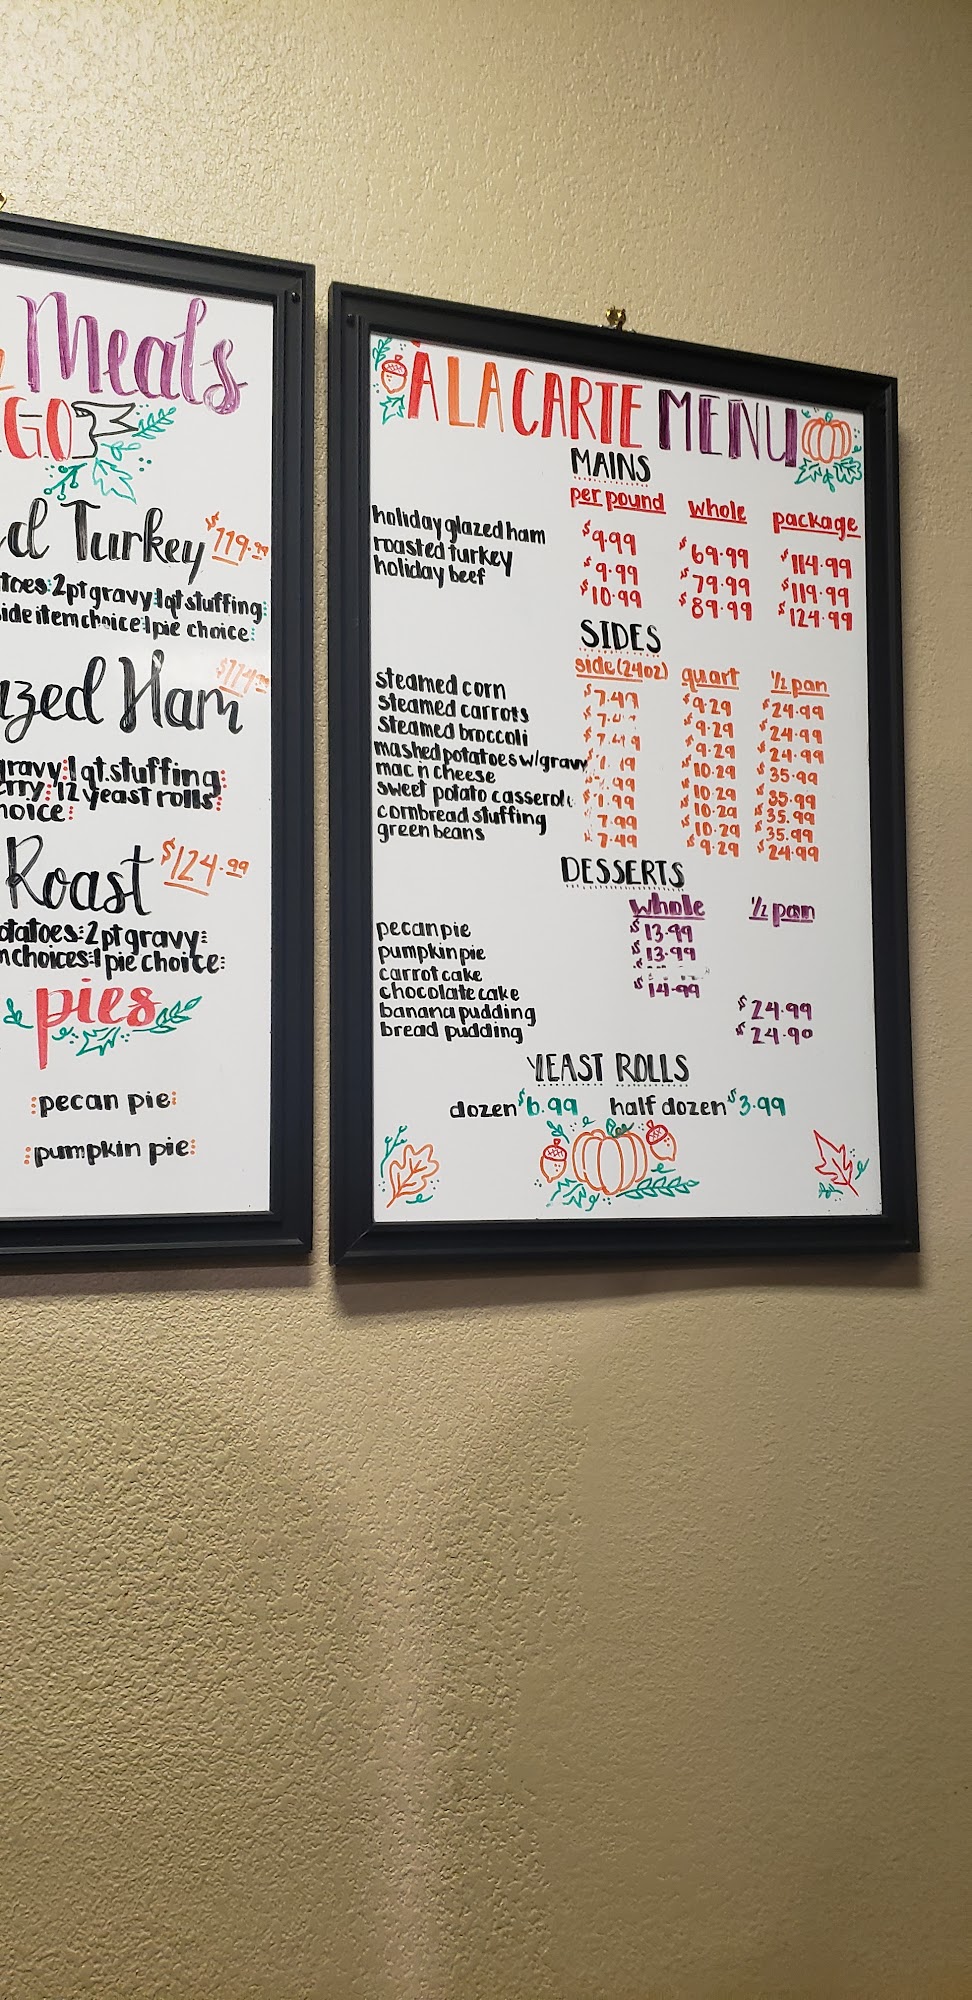 Meals
GO
Turkey $119.99
2pt gravy 1qt stuffing
item choice 1 pie choice
Ham
gravy 1 qt. stuffing
12 yeast rolls
Roast $124.99
2 pt gravy
choices 1 pie choice
pies
pecan pie
pumpkin pie
À LA CARTE MENU
MAINS
per pound whole package
holiday glazed ham $9.99 $69.99 $114.99
roasted turkey $9.99 $79.99 $119.99
holiday beef $10.99 $89.99 $124.99
SIDES
side (24oz) quart 1/2 pan
steamed corn $7.49 $9.29 $24.99
steamed carrots $9.29 $24.99
steamed broccoli $7.49 $9.29 $24.99
mashed potatoes w/gravy $10.29 $35.99
mac n cheese $10.29 $35.99
sweet potato casserole $10.29 $35.99
cornbread stuffing $7.99 $10.29 $35.99
green beans $7.49 $9.29 $24.99
DESSERTS
whole 1/2 pan
pecan pie $13.99
pumpkin pie $13.99
carrot cake
chocolate cake $14.99
banana pudding $24.99
bread pudding $24.90
YEAST ROLLS
dozen $6.99 half dozen $3.99